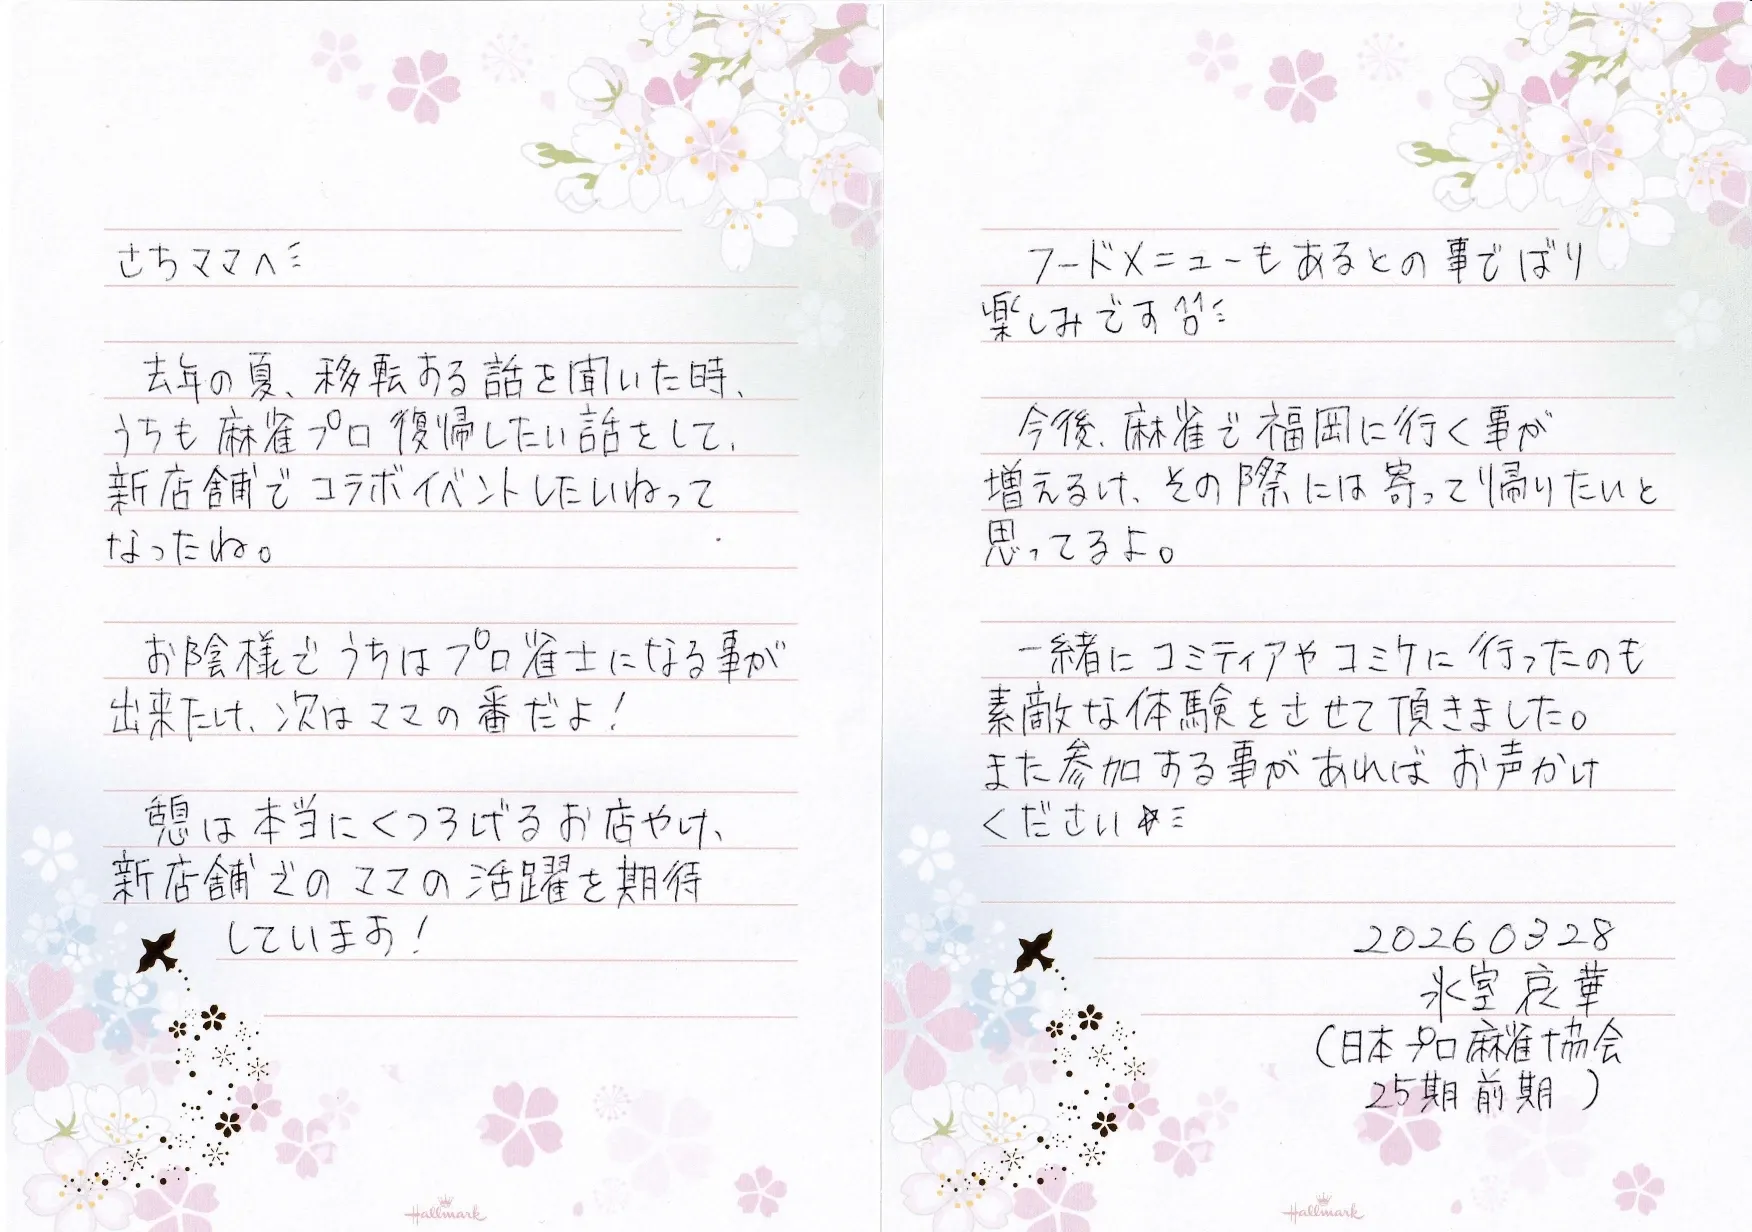 さちママへ
去年の夏、移転ある話を聞いた時、
うちも麻雀プロ復帰したい話をして、
新店舗でコラボイベントしたいねって
なったね。
お陰様でうちはプロ雀士になる事が
出来たけ、次はママの番だよ!
憩は本当にくつろげるお店やけ、
新店舗でのママの活躍を期待
しています!
Hallmark
フードメニューもあるとの事でばり
楽しみです
今後、麻雀で福岡に行く事が
増えるけ、その際には寄って帰りたいと
思ってるよ。
一緒にコミティアやコミケに行ったのも
素敵な体験をさせて頂きました。
また参加する事があればお声かけ
ください☆
20260328
氷室哀華
(日本プロ麻雀協会
25期前期)
Hallmark